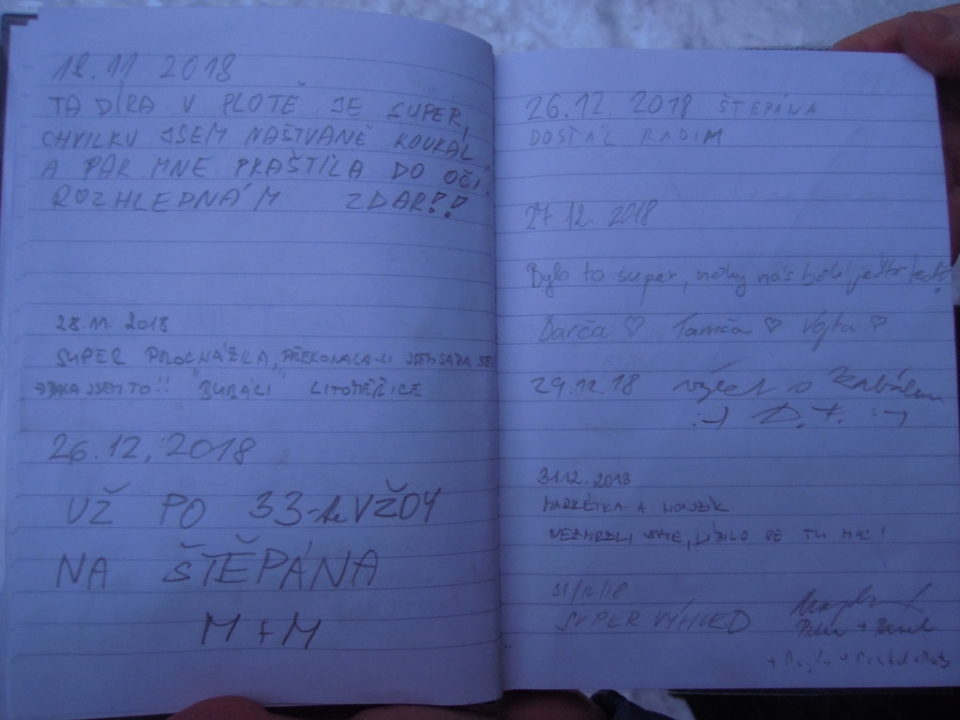 18.11 2018
TA DÍRA V PLOTĚ JE SUPER,
CHVILKU JSEM NAŠTVANĚ KOUKAL
A PAK MNE PRAŠTILA DO OČÍ!
ROZHLEDNÁM ZDAR!!
28.11. 2018
SUPER PROCHÁZKA, PŘEKONALA JSEM SAMA SE
JSEM TO!! "BURÁCI" LITOMĚŘICE
26.12. 2018
UŽ PO 33-té VŽDY
NA ŠTĚPÁNA
M + M
26.12. 2018 ŠTĚPÁNA
DOSTÁL RADIM
27 12. 2018
Bylo to super, nohy nás bolí ještě teď!
Barča ♡ Tamča ♡ Vojta ♡
29.12.18 výlet s
:-) D. F. :-)
31.12. 2018
MARKÉTKA A HONZÍK
NEZMRZLI JSME, LÍBILO SE TU MOC!
31/12/18
SUPER VÝHLED